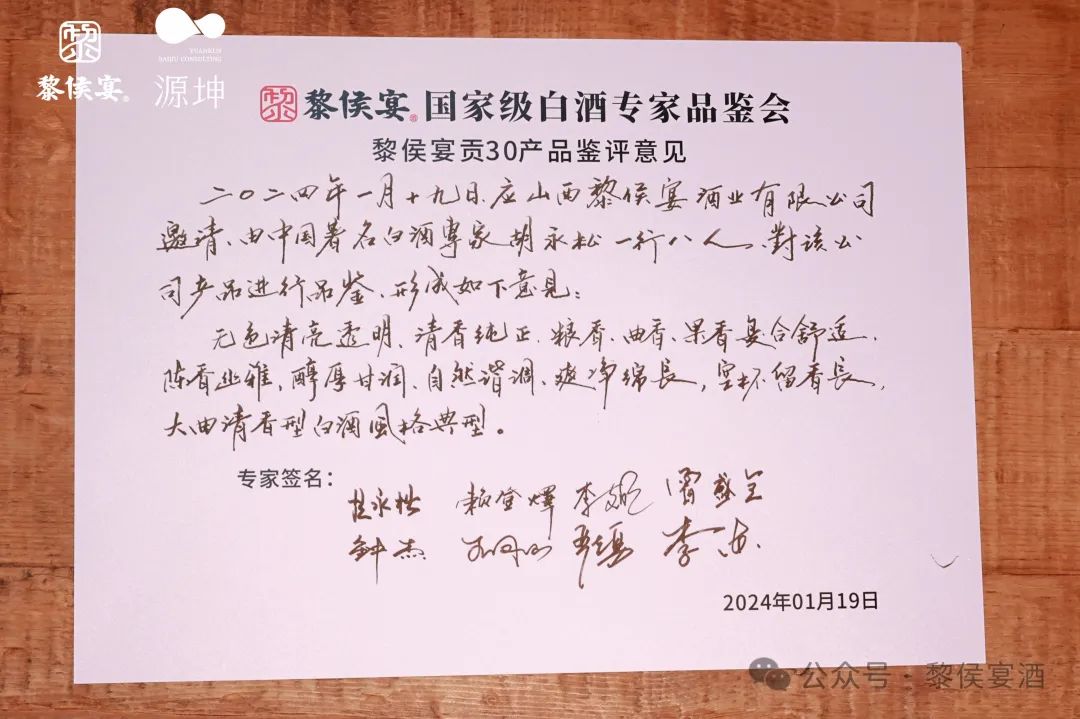 黎侯宴®
YUANKUN
BAIJIU CONSULTING
源坤
黎侯宴 国家级白酒专家品鉴会
黎侯宴贡30产品鉴评意见
二〇二四年一月十九日、应山西黎侯宴酒业有限公司
邀请、由中国著名白酒專家胡永松一行八人、對该公
司产品进行品鉴、形成如下意見:
无色清亮透明、清香纯正、粮香、曲香、果香复合舒适、
陈香幽雅、醇厚甘润、自然谐调、爽净绵長，空杯留香長，
大曲清香型白酒風格典型。
专家签名：
胡永松 赖登燡 李
钟杰 李
2024年01月19日
公众号·黎侯宴酒